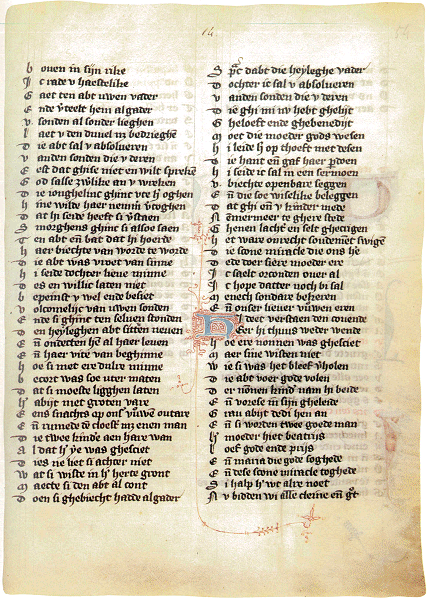 14.
54
b ouen in sijn rike
J c rade v haestelike
G aet ten abt uwen vader
E nde v̄teelt hem algader
v sonden al sonder lieghen
L aet v den duuel n̄ bedrieghē
D ie abt sal v absolueren
v anden sonden die v deren
E est dat ghise niet en wilt sprekē
G od salse zw̄like an v wreken
D ie iongheline ghinc vte hᵉ oghen
h ine wilde haer nēmeer v̄toghen
D at hi seide heeft si v̄staen
S morghens ghinc si alsoe saen
T en abt en̄ bat dat hi hoerde
h aer biechte van worde te worde
D ie abt was vroet van sinne
h i seide dochter lieue minne
D es en willic laten niet
b epeinst v wel ende besiet
v olcomelijc van uwen sonden
E nde si ghinc ten seluen stonden
D en heyleghen abt sitten neuen
E n̄ ontecten hē al haer leuen
E n̄ haer vite van beghinne
h oe si met ere dulre minne
b ecort was soe uter maten
D at si moeste ligghen laten
h ᵉ abijt met groten vare
E ens snachts op onsᵉ vrouwē outare
E n̄ rumede dē cloest met enen man
D ie twee kindᵉ aen hare wan
A l dat hᵉ ye was ghesciet
D ies ne liet si achter niet
W at si wiste in hᵉ herte gront
M aecte si den abt al cont
D oen si ghebiecht hadde algader
S prac dabt die heyleghe vader
D ochter ic sal v absolueren
v anden sonden die v deren
D ie ghi mi nv hebt ghelijt
G heloeft ende ghebenedijt
M oet die moeder gods wesen
h i leide hᵉ op thooft met desen
D ie hant en̄ gaf haer pardoen
h i seide ic sal in een sermoen
v biechte openbare segghen
E n̄ die soe wiselike beleggen
D at ghi en̄ v kinder mede
N ēmermeer te ghere stede
G henen lachter en selt ghecrigen
h et ware onrecht soudement swigē
D ie scone miracle die ons hē
D ede doer siere moeder ere
J c saelt orconden ouer al
J c hope datter noch bi sal
M enech sondare bekeren
E n̄ onser lieuer vrouwen eren
H i deet verstaen den couende
Eer hi thuus weder wende
h oe ere nonnen was ghesciet
M aer sine wisten niet
W ie si was het bleef v̄holen
D ie abt voer gode volen
D er nōnen kindᵉ nam hi beide
E n̄ vorese in sijn gheleide
G rau abijt dedi hen an
E n̄ si worden twee goede man
hᵉ moeder hiet beatrijs
L oef gode ende prijs
E n̄ maria die gode soghede
E n̄ dese scone miracle toghede
S i halp hᵉ vt alre noet
N v bidden wi alle cleine en̄ groet